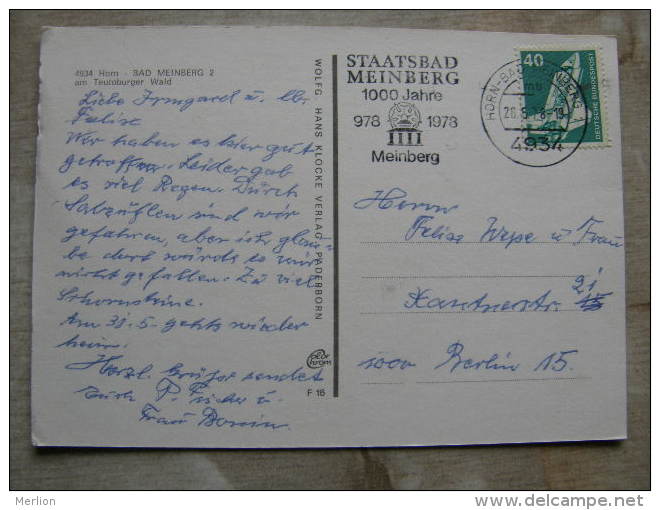 4934 Horn - BAD MEINBERG 2
am Teutoburger Wald
Liebe Irmgard u. lb.
Felix
Wir haben es hier gut
getroffen. Leider gab
es viel Regen. Durch
Salzuflen sind wir
gefahren, aber ich glau-
be dort würde es mir
nicht gefallen. Zu viel
Schornsteine.
Am 31.5. gehts wieder
heim.
Herzl. Grüße sendet
Euch P. Fischer u.
Frau
WOLFG. HANS KLOCKE VERLAG, PADERBORN
F 16
STAATSBAD
MEINBERG
1000 Jahre
978 1978
Meinberg
HORN-BAD MEINBERG 1
4934
40
DEUTSCHE BUNDESPOST
Herrn
Felix u Frau
Xantnerstr. 21
1000 Berlin 15.
Merlion
www.delcampe.net